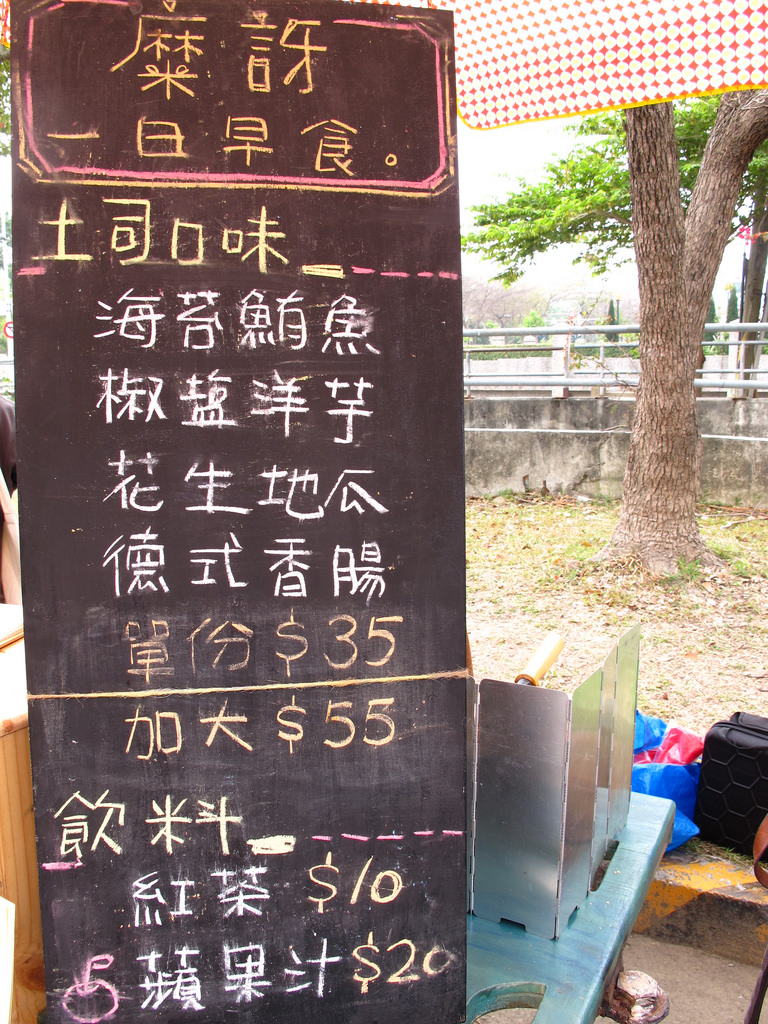 糜訝
一日早食。
土司口味
海苔鮪魚
椒鹽洋芋
花生地瓜
德式香腸
單份$35
加大$55
飲料
紅茶 $10
蘋果汁$20